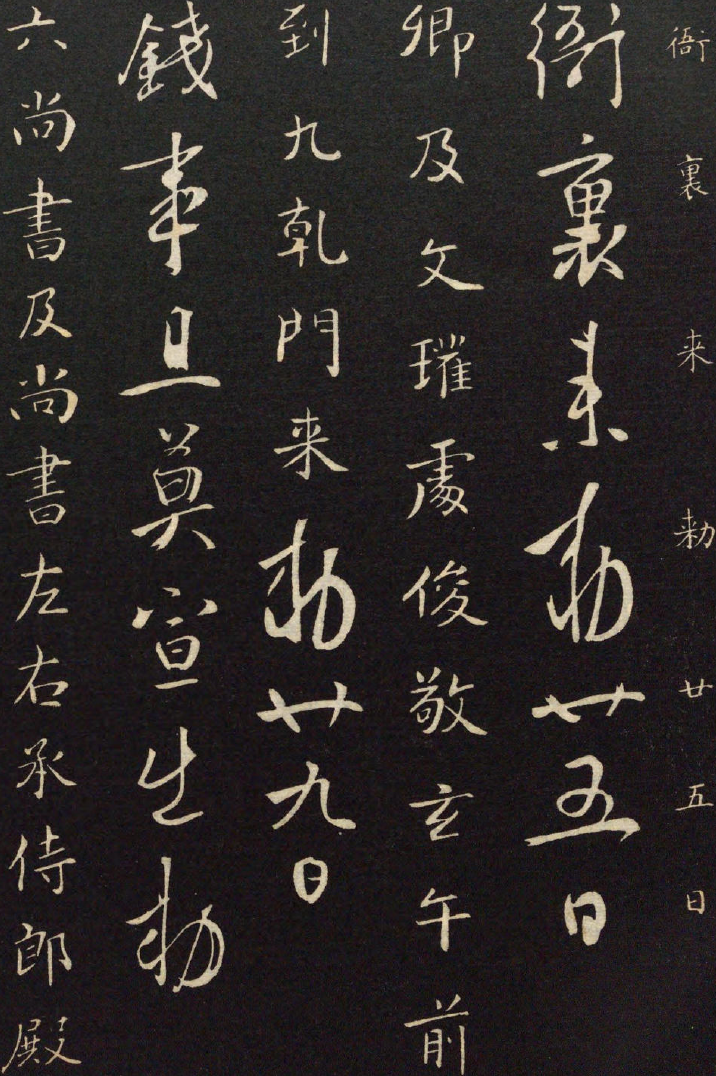 衙裏来勅廿五日
衙裏来勅廿五日
卿及文瓘處俊敬玄午前
到九乹門来勅廿九日
錢事且莫宣生勅
六尚書及尚書左右承侍郎殿